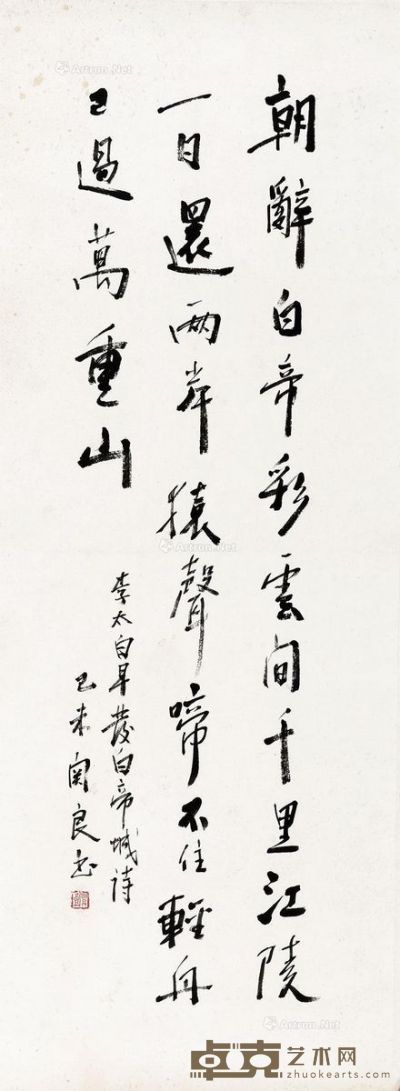 朝辭白帝彩雲間千里江陵
一日還兩岸猿聲啼不住輕舟
已過萬重山
李太白早發白帝城詩
己未関良书
Artron.Net
Artron.Net
Artron.Net
卓克艺术网
www.zhuokearts.com